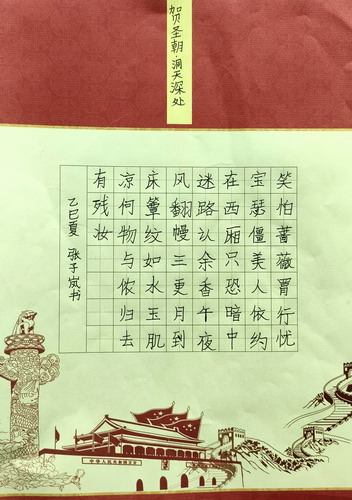 贺圣朝·洞天深处
笑怕蔷薇罥行忧
宝瑟僵美人依约
在西厢只恐暗中
迷路认余香午夜
风翻幔三更月到
床簟纹如水玉肌
凉何物与侬归去
有残妆
乙巳夏 张子岚书
中华人民共和国万岁